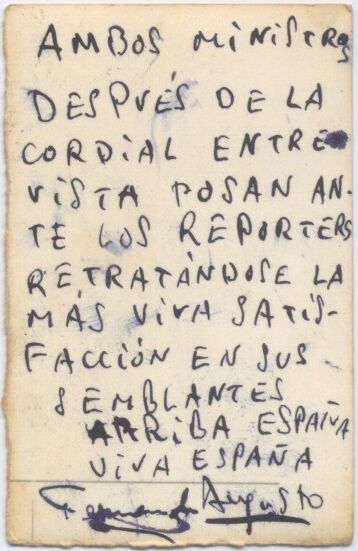 AMBOS MINISTROS
DESPUÉS DE LA
CORDIAL ENTRE
VISTA POSAN AN-
TE LOS REPORTERS
RETRATÁNDOSE LA
MÁS VIVA SATIS-
FACCIÓN EN SUS
SEMBLANTES
ARRIBA ESPAÑA
VIVA ESPAÑA
Fernando Augusto